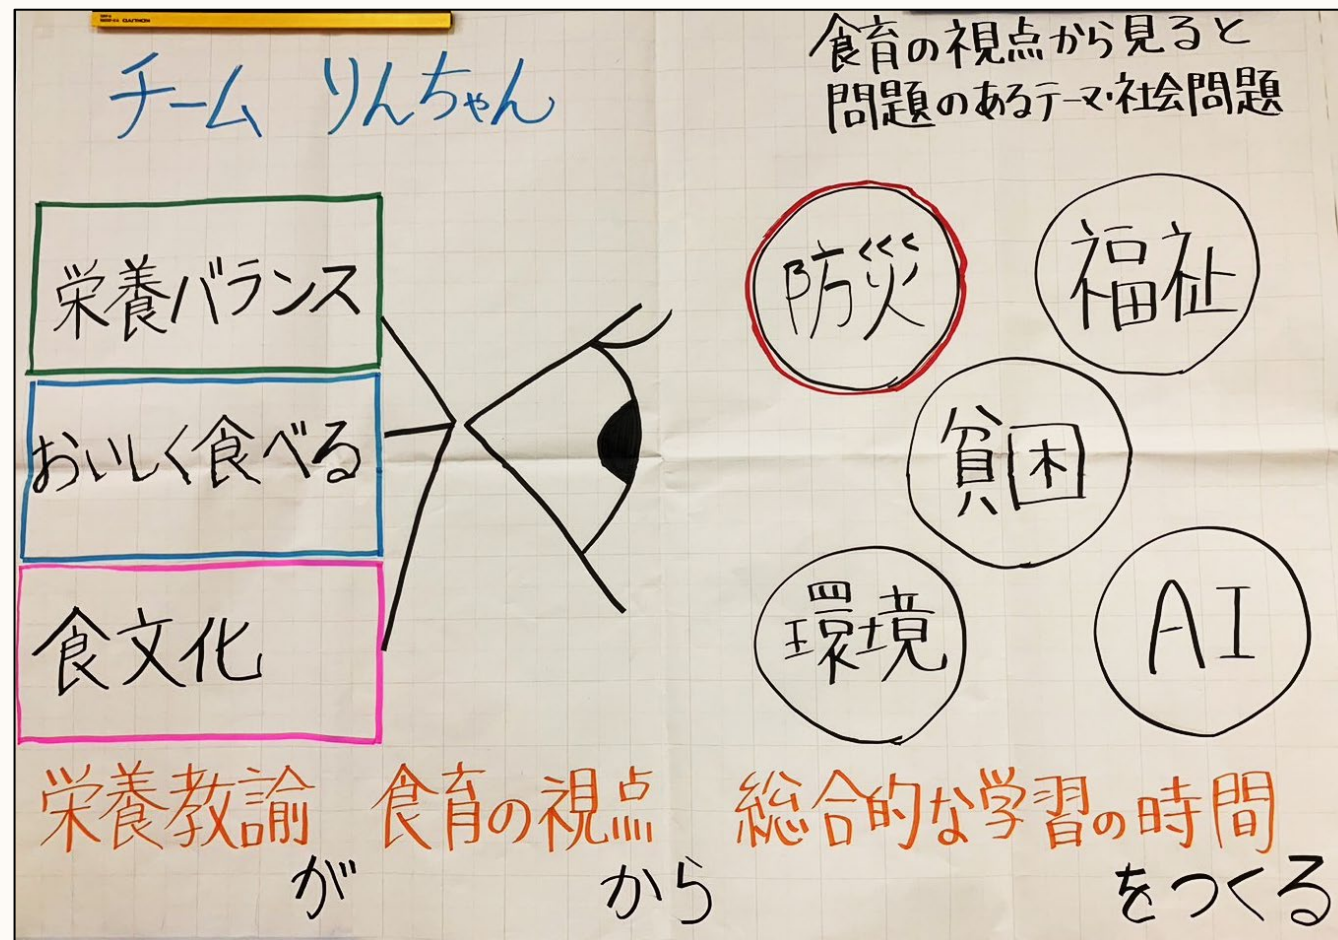 チーム りんちゃん
食育の視点から見ると
問題のあるテーマ・社会問題
栄養バランス
おいしく食べる
食文化
防災
福祉
貧困
環境
AI
栄養教諭 食育の視点 総合的な学習の時間
が から をつくる